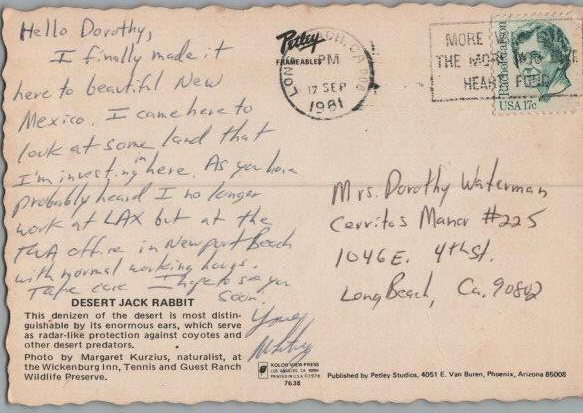 Hello Dorothy,
I finally made it
here to beautiful New
Mexico. I came here to
look at some land that
I'm investing in here. As you have
probably heard I no longer
work at LAX but at the
TWA office in Newport Beach
with normal working hours.
Take care I hope to see you
soon.
Yours
Whitey
DESERT JACK RABBIT
This denizen of the desert is most distin-
guishable by its enormous ears, which serve
as radar-like protection against coyotes and
other desert predators.
Photo by Margaret Kurzius, naturalist, at
the Wickenburg Inn, Tennis and Guest Ranch
Wildlife Preserve.
Petley
FRAMEABLES
LONG BEACH, CA 908
PM
17 SEP
1981
MORE
THE MORE YOU
HEART FUND
Rachel Carson
USA 17c
Mrs. Dorothy Waterman
Cerritos Manor #225
1046 E. 4th St.
Long Beach, Ca. 90802
KOLOR VIEW PRESS
LOS ANGELES, CA.
PRINTED IN U.S.A. © 1976
7638
Published by Petley Studios, 4051 E. Van Buren, Phoenix, Arizona 85008